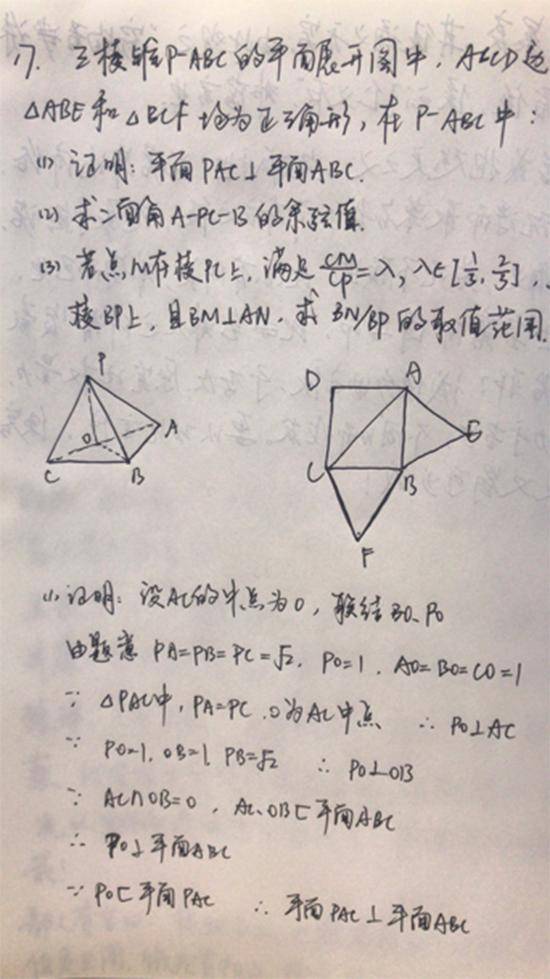 17. 三棱锥P-ABC的平面展开图中, ABCD
△ABE和△BCF均为正三角形, 在P-ABC中:
(1) 证明: 平面PAC⊥平面ABC.
(2) 求二面角A-PC-B的余弦值.
(3) 若点M在棱PC上, 满足 CM/CP=λ, λ∈[1/3, 2/3],
棱BP上, 且BM⊥AN, 求 BN/BP 的取值范围.
P
O
A
C
B
D
A
E
C
B
F
(1) 证明: 设AC的中点为O, 联结BO、PO
由题意 PA=PB=PC=√2, PO=1, AO=BO=CO=1
∵ △PAC中, PA=PC, O为AC中点 ∴ PO⊥AC
∵ PO=1, OB=1, PB=√2 ∴ PO⊥OB
∵ AC∩OB=O, AC、OB⊏平面ABC
∴ PO⊥平面ABC
∵ PO⊏平面PAC ∴ 平面PAC⊥平面ABC